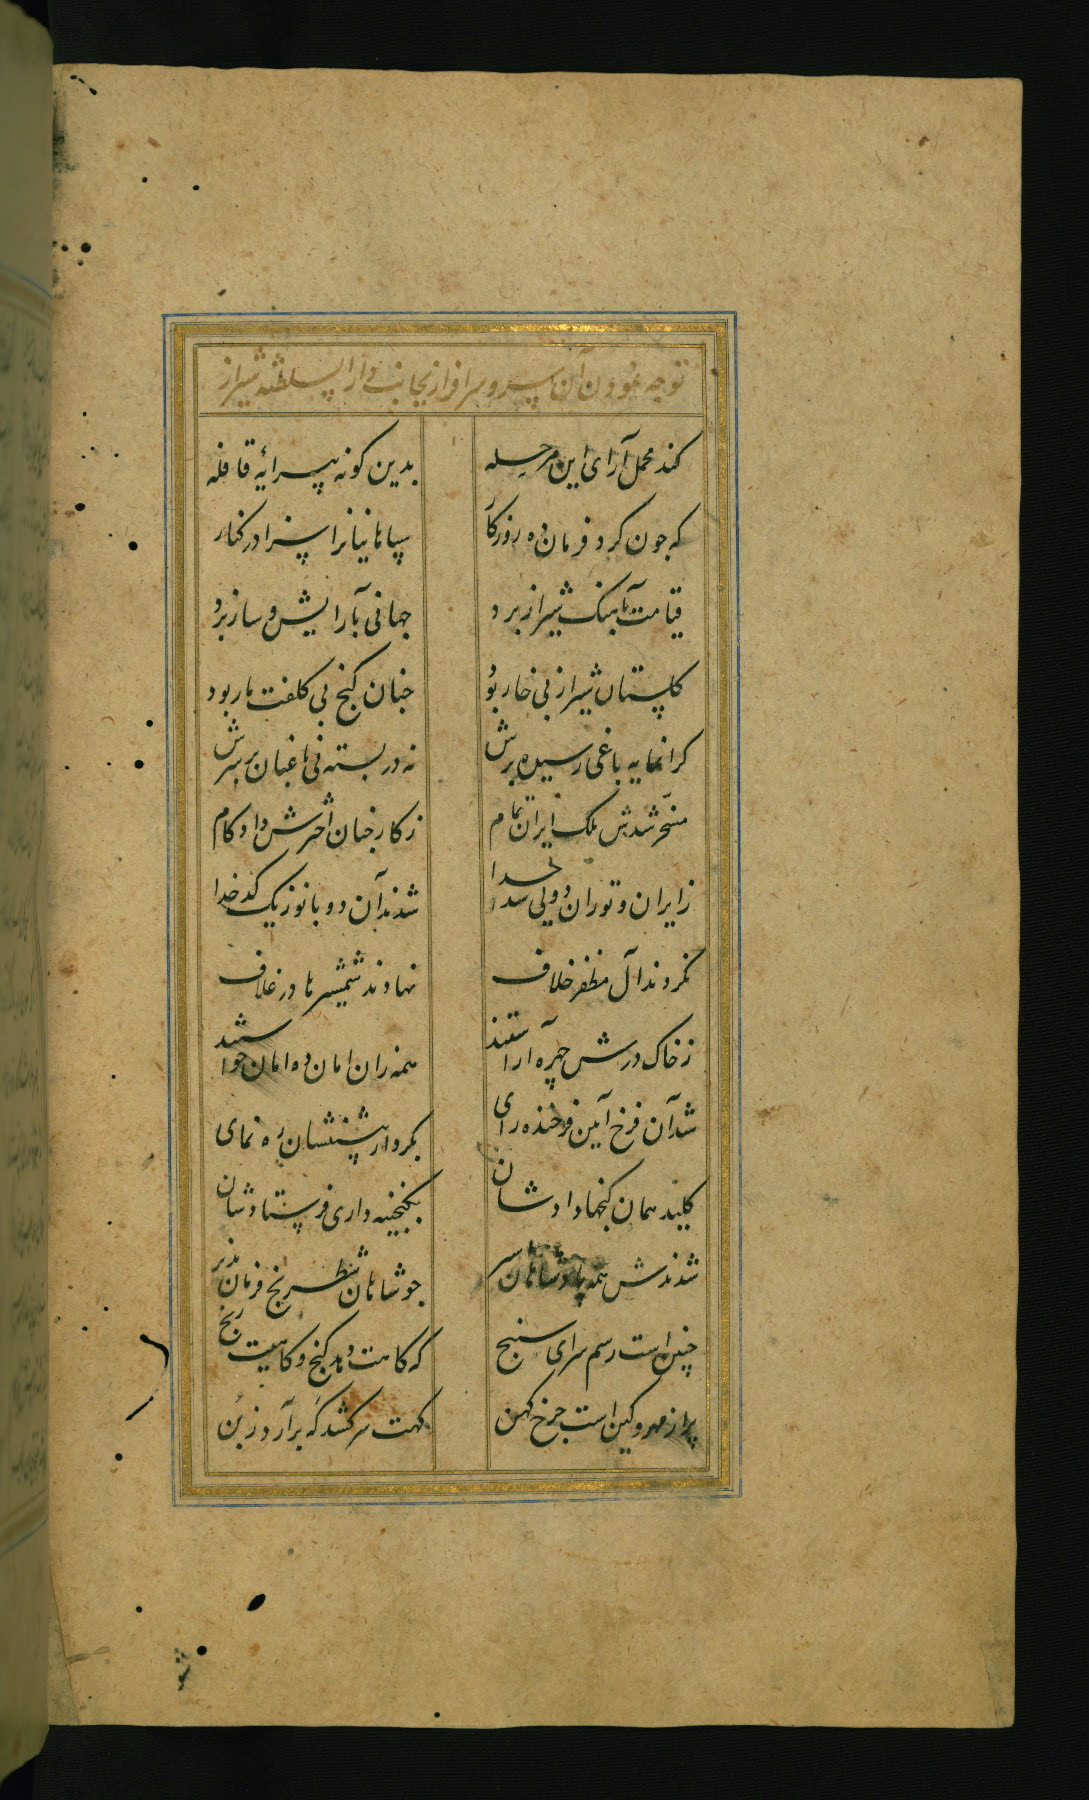 توجه نمودن آن سرو سرافراز بجانب دارالسلطنه شیراز
کند محمل آرای این مرحله بدین کونه پیرایهٔ قافله
که جون کرد فرمان ده روزکار سپاهانیانرا سزا در کنار
قیامت آهنک شیراز برد جهانی بآرایش و ساز برد
کلستان شیراز بی خار بود جنان کنج بی کلفت مار بود
کرانمایه باغی رسیده برش نه در بسته نی باغبان بر سرش
مسخر شدش ملک ایران تمام ز کار جنان اخترش داد کام
ز ایران و توران دویی شد جدا شدند آن دو بانو ز یک کدخدا
نکردند آل مظفر خلاف نهادند شمشیرها در غلاف
ز خاک درش چهره آراستند همه زان امان ده امان خواستند
شد آن فرخ آیین فرخنده رای بکردار پیشینشان ره نمای
کلید همان کنجها دادشان بکنجینه داری فرستادشان
شدندش همه پادشاهان سر جو شاهان شطرنج فرمان پذیر
چنین است رسم سرای سپنج که کاهت دهد کنج و کاهیت رنج
پر از مهر و کین است جرخ کهن کهت سر کشد که برآرد ز بن